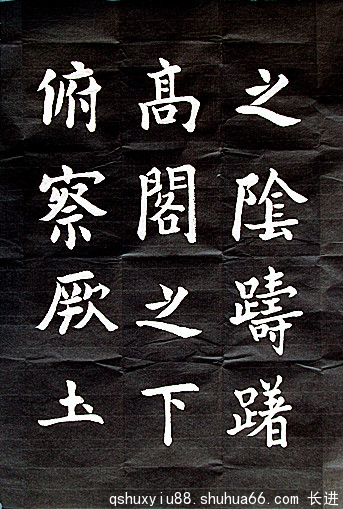 之陰躊躇
髙閣之下
俯察厥土
qshuxyiu88.shuhua66.com 长进